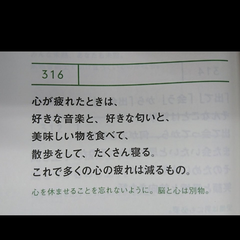 316
心が疲れたときは、
好きな音楽と、好きな匂いと、
美味しい物を食べて、
散歩をして、たくさん寝る。
これで多くの心の疲れは減るもの。
心を休ませることを忘れないように。脳と心は別物。